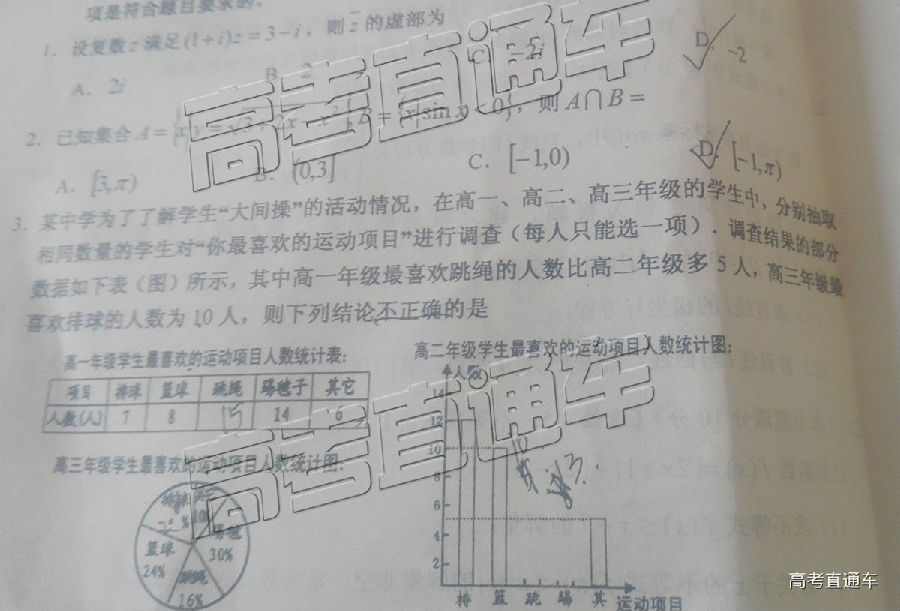 项是符合题目要求的.
1. 设复数z满足(1+i)z=3-i，则z̄的虚部为
A. 2i B. 2 C. -2i D. -2
2. 已知集合A={x|y=√3+2x-x²},B={x|sin x<0}，则A∩B=
A. [3,π) B. (0,3] C. [-1,0) D. [-1,π)
3. 某中学为了了解学生“大间操”的活动情况，在高一、高二、高三年级的学生中，分别抽取
相同数量的学生对“你最喜欢的运动项目”进行调查（每人只能选一项）．调查结果的部分
数据如下表（图）所示，其中高一年级最喜欢跳绳的人数比高二年级多5人，高三年级最
喜欢排球的人数为10人，则下列结论不正确的是
高一年级学生最喜欢的运动项目人数统计表：
项目 排球 篮球 跳绳 踢毽子 其它
人数(人) 7 8 15 14 6
高二年级学生最喜欢的运动项目人数统计图：
人数
14
12
10
8
6
4
2
排 篮 跳 踢 其 运动项目
高三年级学生最喜欢的运动项目人数统计图：
10%
踢毽
30%
篮球
24%
跳绳
16%
高考直通车
高考直通车
高考直通车